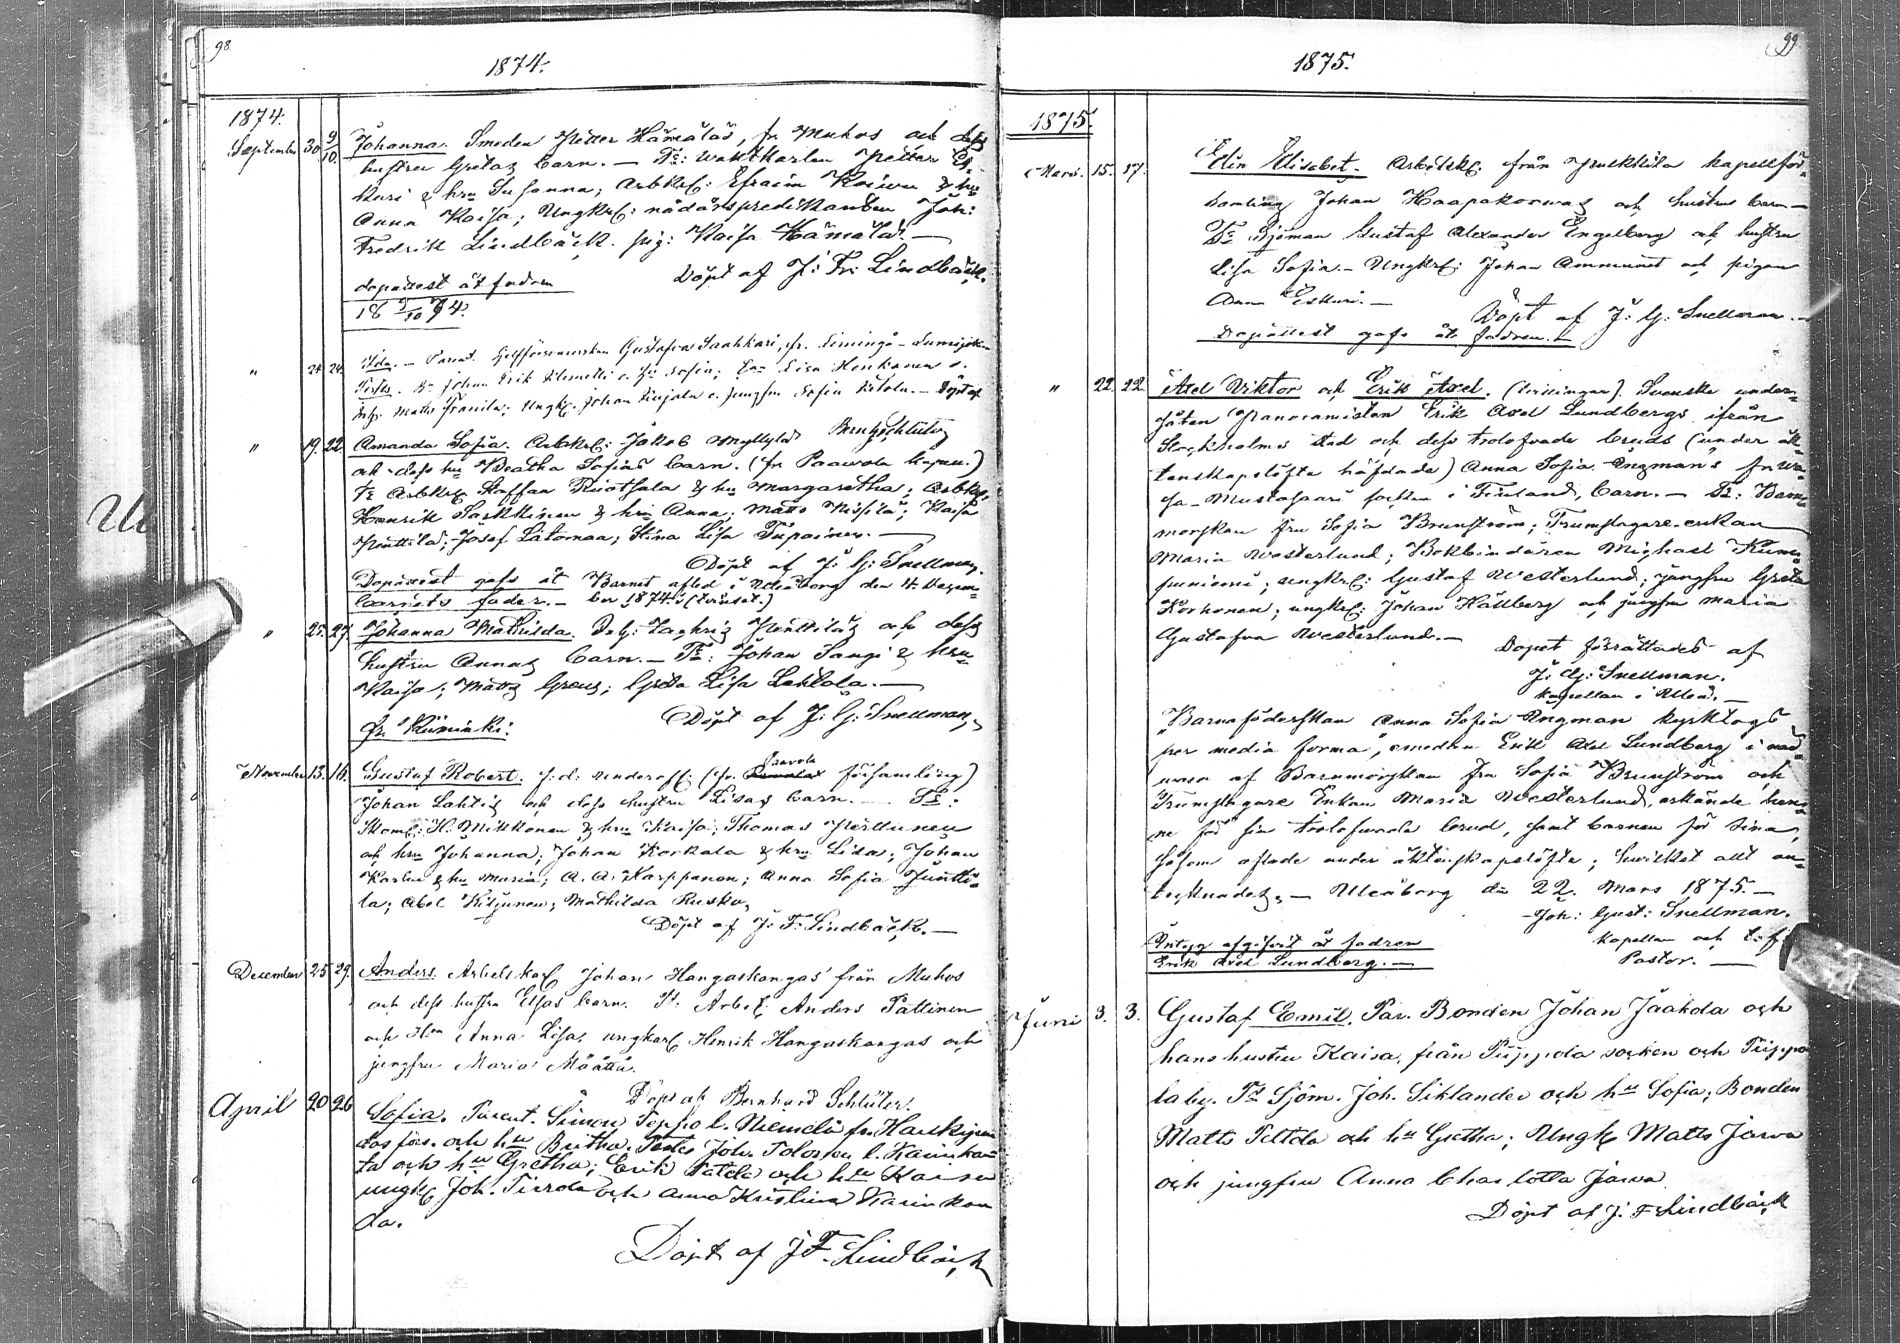 98
1874.
1874.
September 30 9/10. Johanna. Smeden Petter Hämäläs, fr. Muhos och dess
hustru Gretas barn. — Ts: waktkarlen Petter
& hru Susanna; Arbkrl: Efraim Koiwu & hru
Anna Kaisa; Ungkrl: nådårspredikanten Joh:
Fredrik Lindbäck, pig: Kaisa Hämälä. —
Döpt af J: Fr: Lindbäck.
dopattest åt fadren
18 9/10 74.
" 24. 24. Ida. — Parent. Gustafva Saahkari, fr. Limingo - Lumijoki
Testes. Johan Erik Klemetti o. Hu Sofia; Lisa Honkanen o.
Matts Franila; Ungk. Johan o. Jungfru Sofia — Döpt af
Bernh. Schlüter
" 19. 22. Amanda Sofia. Arbkrl: Jakob Myllyläs
och dess hu Beatha Sofias barn. (fr Paawola kapell.)
Ts Arbkrl Staffan & hu Margaretha; Arbkrl.
Henrik Sarkkinen & hru Anna; Matts; Kaisa
Penttilä; Josef Latomaa; Stina Lisa Tupainen. —
Döpt af J: G: Snellman.
Dopattest gafs åt Barnet afled i Uleåborg den 14 Decem-
barnets fader. — ber 1874.
" 25. 27. Johanna Mathilda. Zachris Penttiläs och dess
hustru Annas barn. — Ts: Johan Sangi & hru
Kaisa; Matts; Greta Lisa Lahtola. —
Döpt af J: G: Snellman.
fr. Kiiminki:
November 13. 16. Gustaf Robert. f.d. underoff: (fr. Paavola församling)
Johan Lahtis och dess hustru Lisas barn. — Ts:
Skom: H. Mikkonen & hru Kaisa; Thomas Perttunen
och hru Johanna; Johan Korkala & hru Lisa; Johan
& hu Maria; A. A. Karppanen; Anna Sofia Juntti-
la; Abel Kiljunen; Mathilda Rusko.
Döpt af J: F: Lindbäck. —
December 25 29. Anders. Arbetskarl Johan Hangaskangas från Muhos
och dess hustru Elsas barn. Ts. Arbet. Anders Pättinen
och Hru Anna Lisa, ungkarl Henrik Hangaskangas och
jungfru Maria Määttä.
Döpt af Bernhard Schlüter.
April 20 26 Sofia. Parent. Simon Seppo l. Niemelä fr. Haukipu-
das förs. och hru Britha. Testes Joh. Tolonen l. Kainka-
ta och hru Gretha; Erik och hru Kaisa
ungk. Joh. och Anna Kristina
la.
Döpt af J F. Lindbäck
99
1875.
1875.
Mars. 15. 17. Elin Elisabet. Arbetskl: från Pulkkila kapellför-
samling Johan Haapakorwas och hustrus barn —
Ts Sjöman Gustaf Alexander Engelberg och hustru
Lisa Sofia. — Ungkrl: Johan Ammunet och pigan
Anna —
Döpt af J: G: Snellman. —
Dopattest gafs åt fadren.
" 22. 22. Axel Viktor och Erik Axel. (tvillingar). Svenske under-
såten Panoramisten Erik Axel Lundbergs ifrån
Stockholms stad och dess trolofvade bruds (under äk-
tenskapslöfte häfdade) Anna Sofia Ångmans fr. Wa-
sa - Mustasaari socken i Finland, barn. — Ts: Barn-
morskan fru Sofia Brunström; Trumslagare-enkan
Maria Westerlund; Bokbindaren Mighael
; ungkrl: Gustaf Westerlund; jungfru Greta
Korhonen; ungkrl: Johan Hällberg och jungfru Maria
Gustafva Westerlund. —
Dopet förrättades af
J: G: Snellman.
Kapellan i Uleå. —
"Barnaföderskan Anna Sofia Ångman kyrktogs
per media forma", emedan Erik Axel Lundberg i när-
varo af Barnmorskan fru Sofia Brunström och
Trumslagare Enkan Maria Westerlund, erkände hen-
ne för sin trolofvade brud, samt barnen för sina,
såsom aflade under äktenskapslöfte; hwilket allt an-
tecknades. — Uleåborg den 22. Mars 1875. —
Joh: Gust: Snellman.
Kapellan och t. f.
Pastor. —
Intyg afgifvit åt fadren
Erik Axel Lundberg. —
Juni 3. 3. Gustaf Emil. Par. Bonden Johan Jaakola och
hans hustru Kaisa, från Piippola socken och Piippo-
la by. Ts Sjöm. Joh. Siklander och hu Sofia; Bonden
Matts och hu Gretha; Ungk Matts Jarva
och jungfru Anna Charlotta Jarva
Döpt af J. F Lindbäck